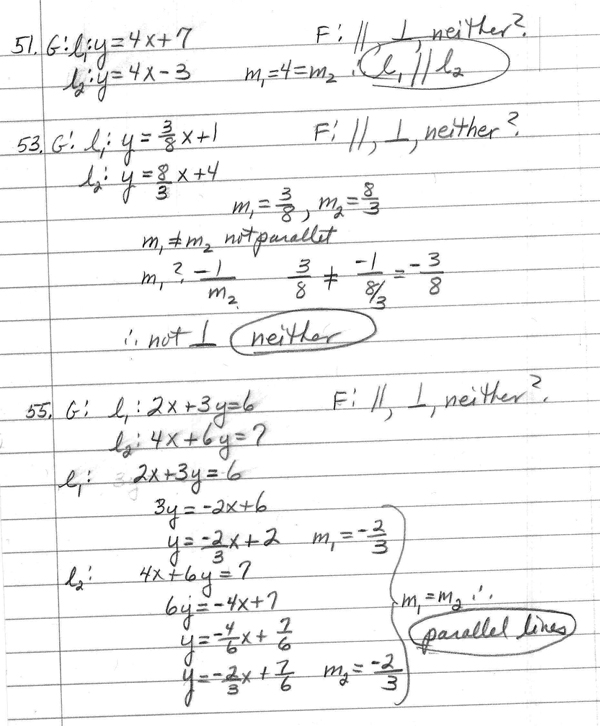 51. G: l₁: y=4x+7 F: //, ⊥, neither?
l₂: y=4x-3 m₁=4=m₂ ∴ l₁//l₂
53. G: l₁: y=3/8x+1 F: //, ⊥, neither?
l₂: y=8/3x+4
m₁=3/8, m₂=8/3
m₁≠m₂ not parallel
m₁ ?= -1/m₂ 3/8 ≠ -1/(8/3) = -3/8
∴ not ⊥ neither
55. G: l₁: 2x+3y=6 F: //, ⊥, neither?
l₂: 4x+6y=7
l₁: 2x+3y=6
3y=-2x+6
y=-2/3x+2 m₁=-2/3
l₂: 4x+6y=7
6y=-4x+7 m₁=m₂ ∴
y=-4/6x+7/6 parallel lines
y=-2/3x+7/6 m₂=-2/3